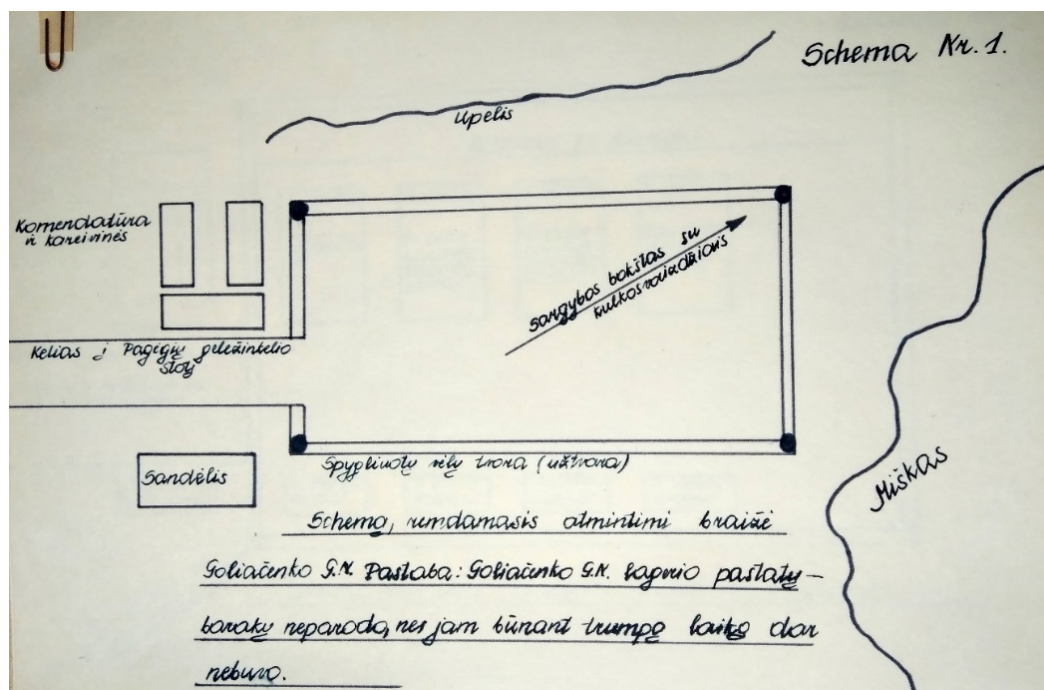 Schema Nr. 1.
Upelis
Komendatūra
ir kareivinės
Sargybos bokštas su
kulkosvaidžiais
Kelias į Pagėgių geležinkelio
stotį
Spygliuotų vielų tvora (užtvara)
Sandėlis
Miškas
Schema, remdamasis atmintimi braižė
Goliačenko G.N. Pastaba: Goliačenko G.N. lagerio pastatų -
barakų neparodo, nes jam būnant trumpą laiką dar
nebuvo.